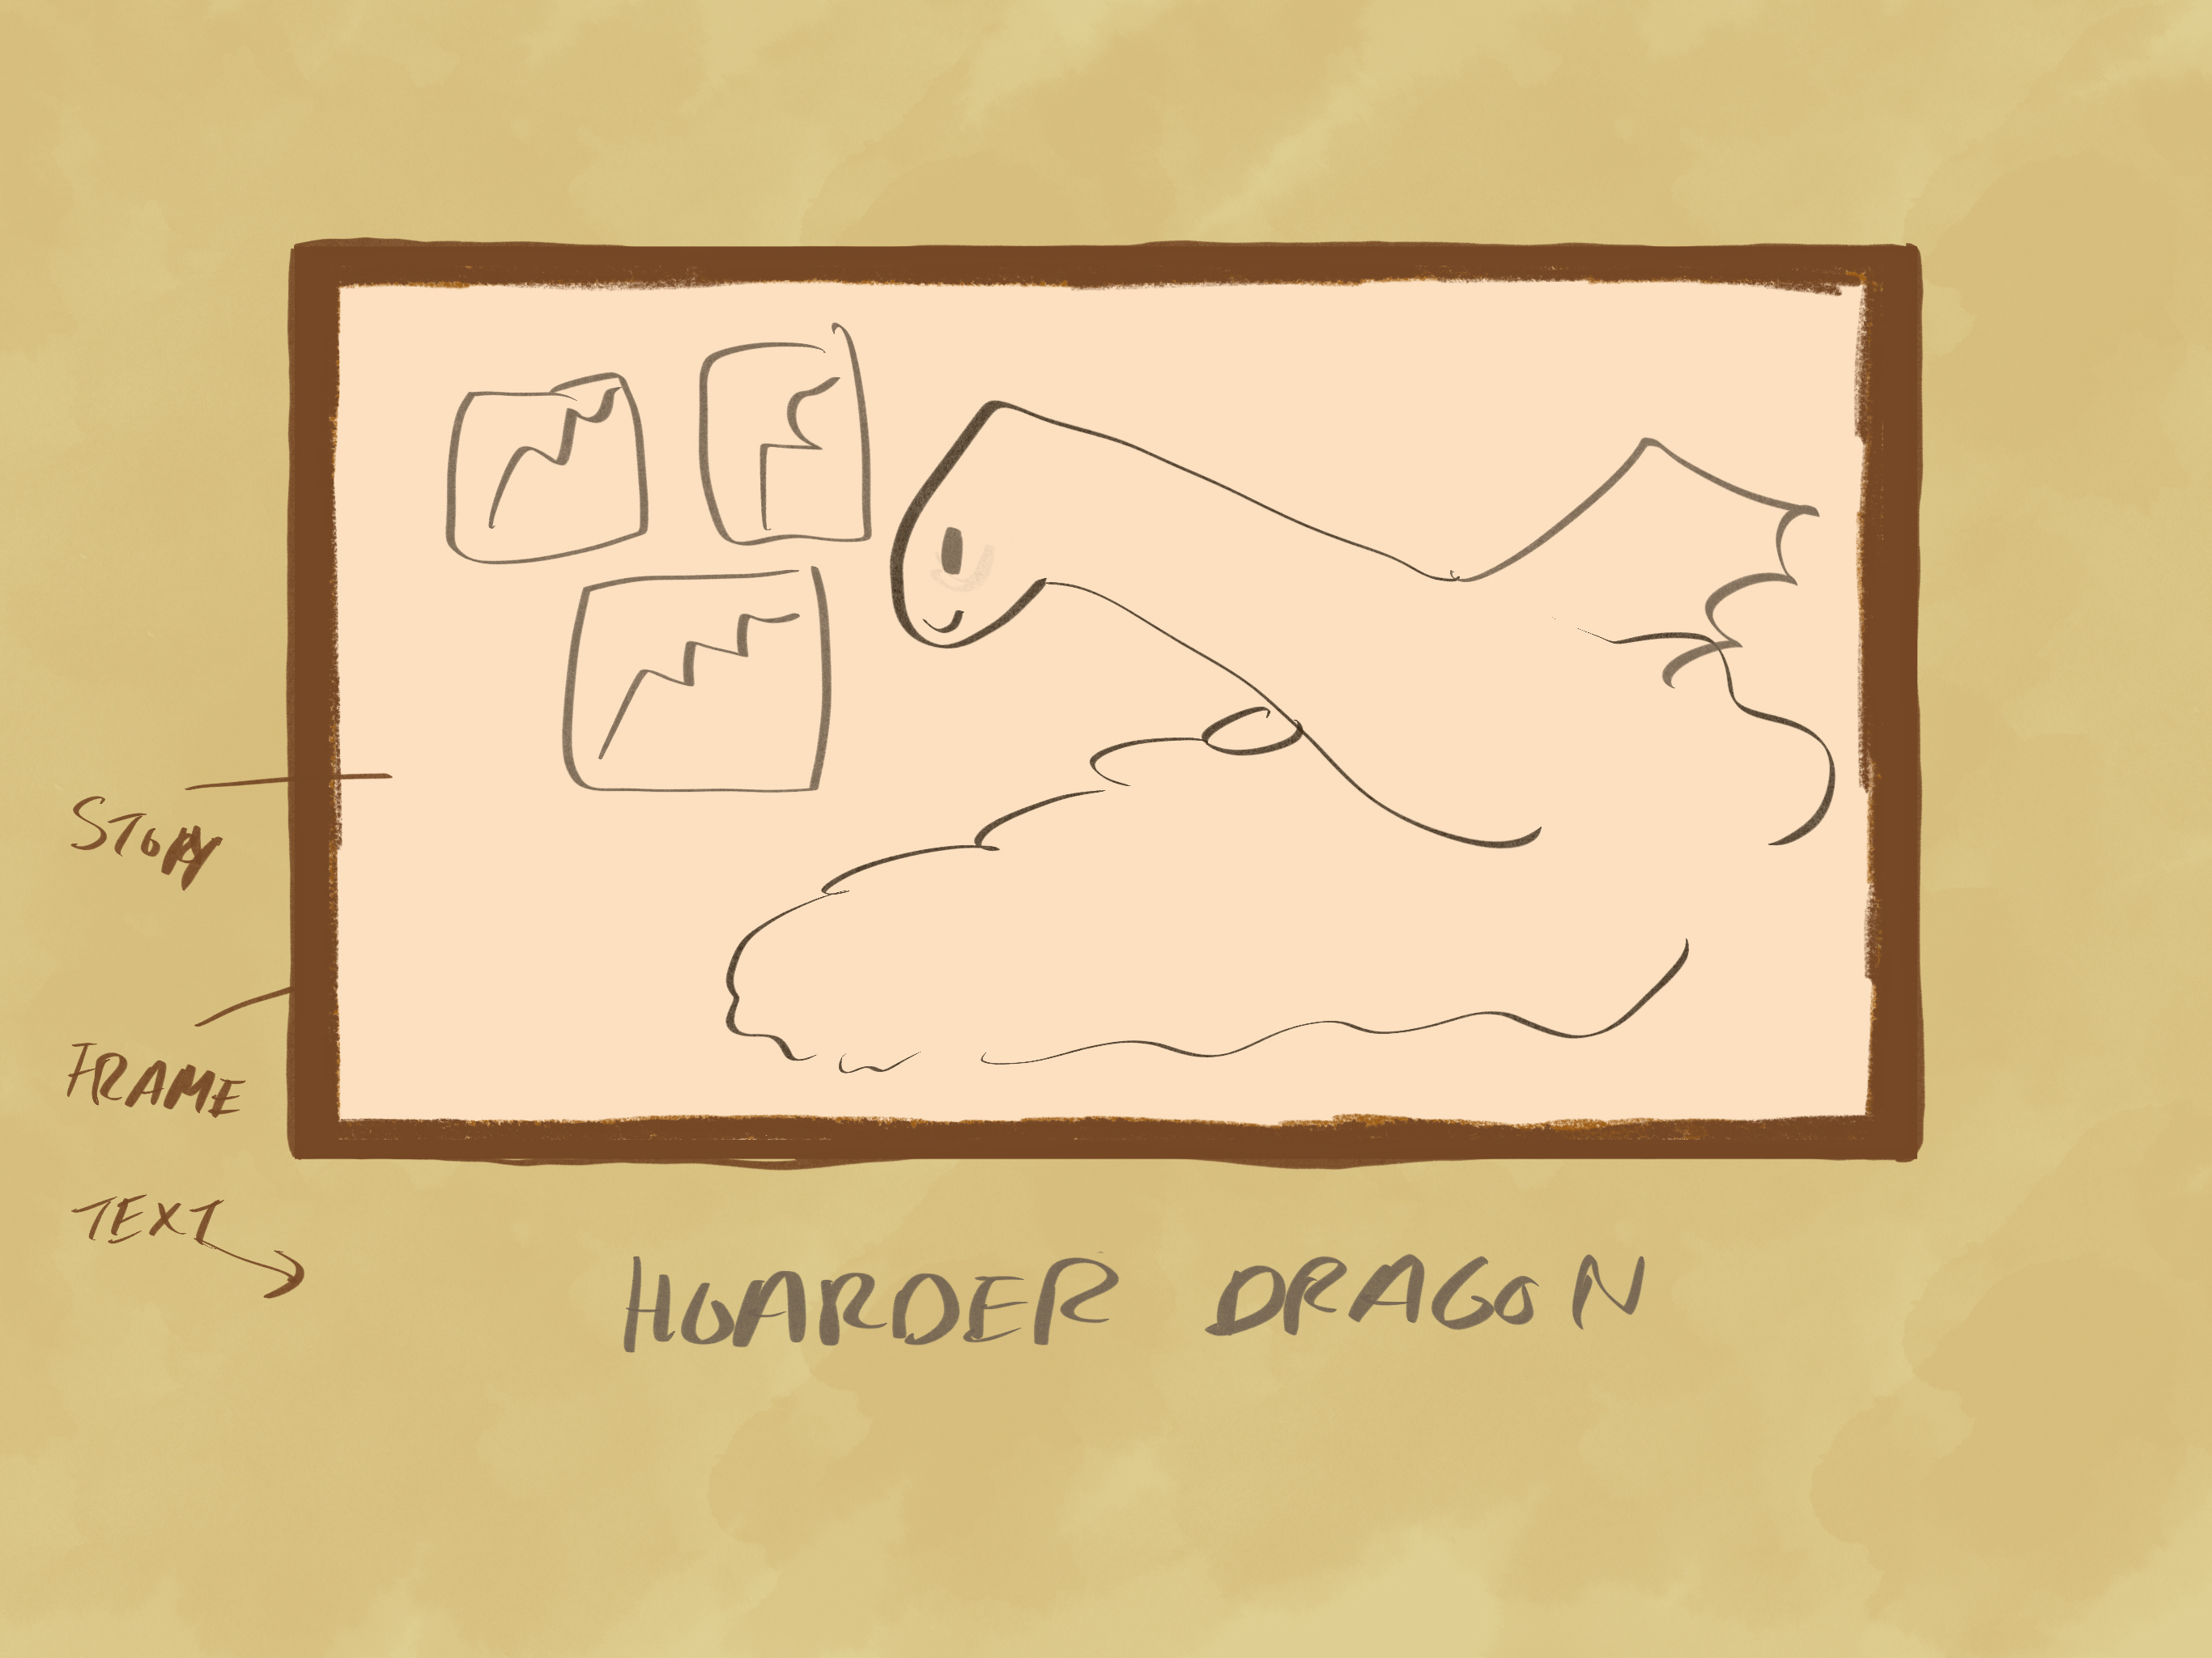 STORY
FRAME
TEXT
HOARDER DRAGON